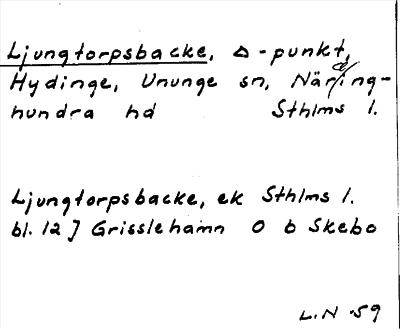 Ljungtorpsbacke, △-punkt,
Hydinge, Ununge sn, Närding-
hundra hd Sthlms l.
Ljungtorpsbacke, ek Sthlms l.
bl. 12 J Grisslehamn O b Skebo
L.N -59